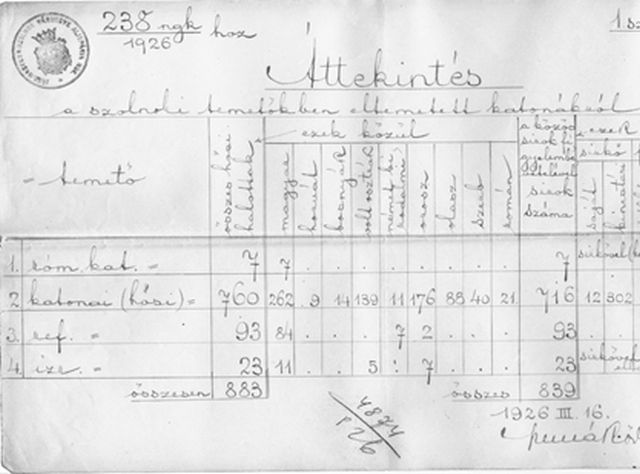 238 ngk hoz
1926
1 sz
Áttekintés
a szolnoki temetőkben eltemetett katonákról
= temető
összes hősi halottak
ezek közül
magyar
horvát
bosnyák
volt osztrák
német bi-rodalmi
orosz
olasz
szerb
román
a közös sirok fi-gyelembe vételével sirok száma
ezek
sirkő
saját
kincstári
1. róm. kat. = 7 7 . . . . . . . . 7 sirkővel
2. katonai (hősi) = 760 262 9 14 139 11 176 88 40 21 716 12 302
3. ref. = 93 84 . . . 7 2 . . . 93
4. izr. = 23 11 . . 5 . 7 . . . 23 sirkővel
összesen 883 összes 839
4874
926
1926 III. 16.